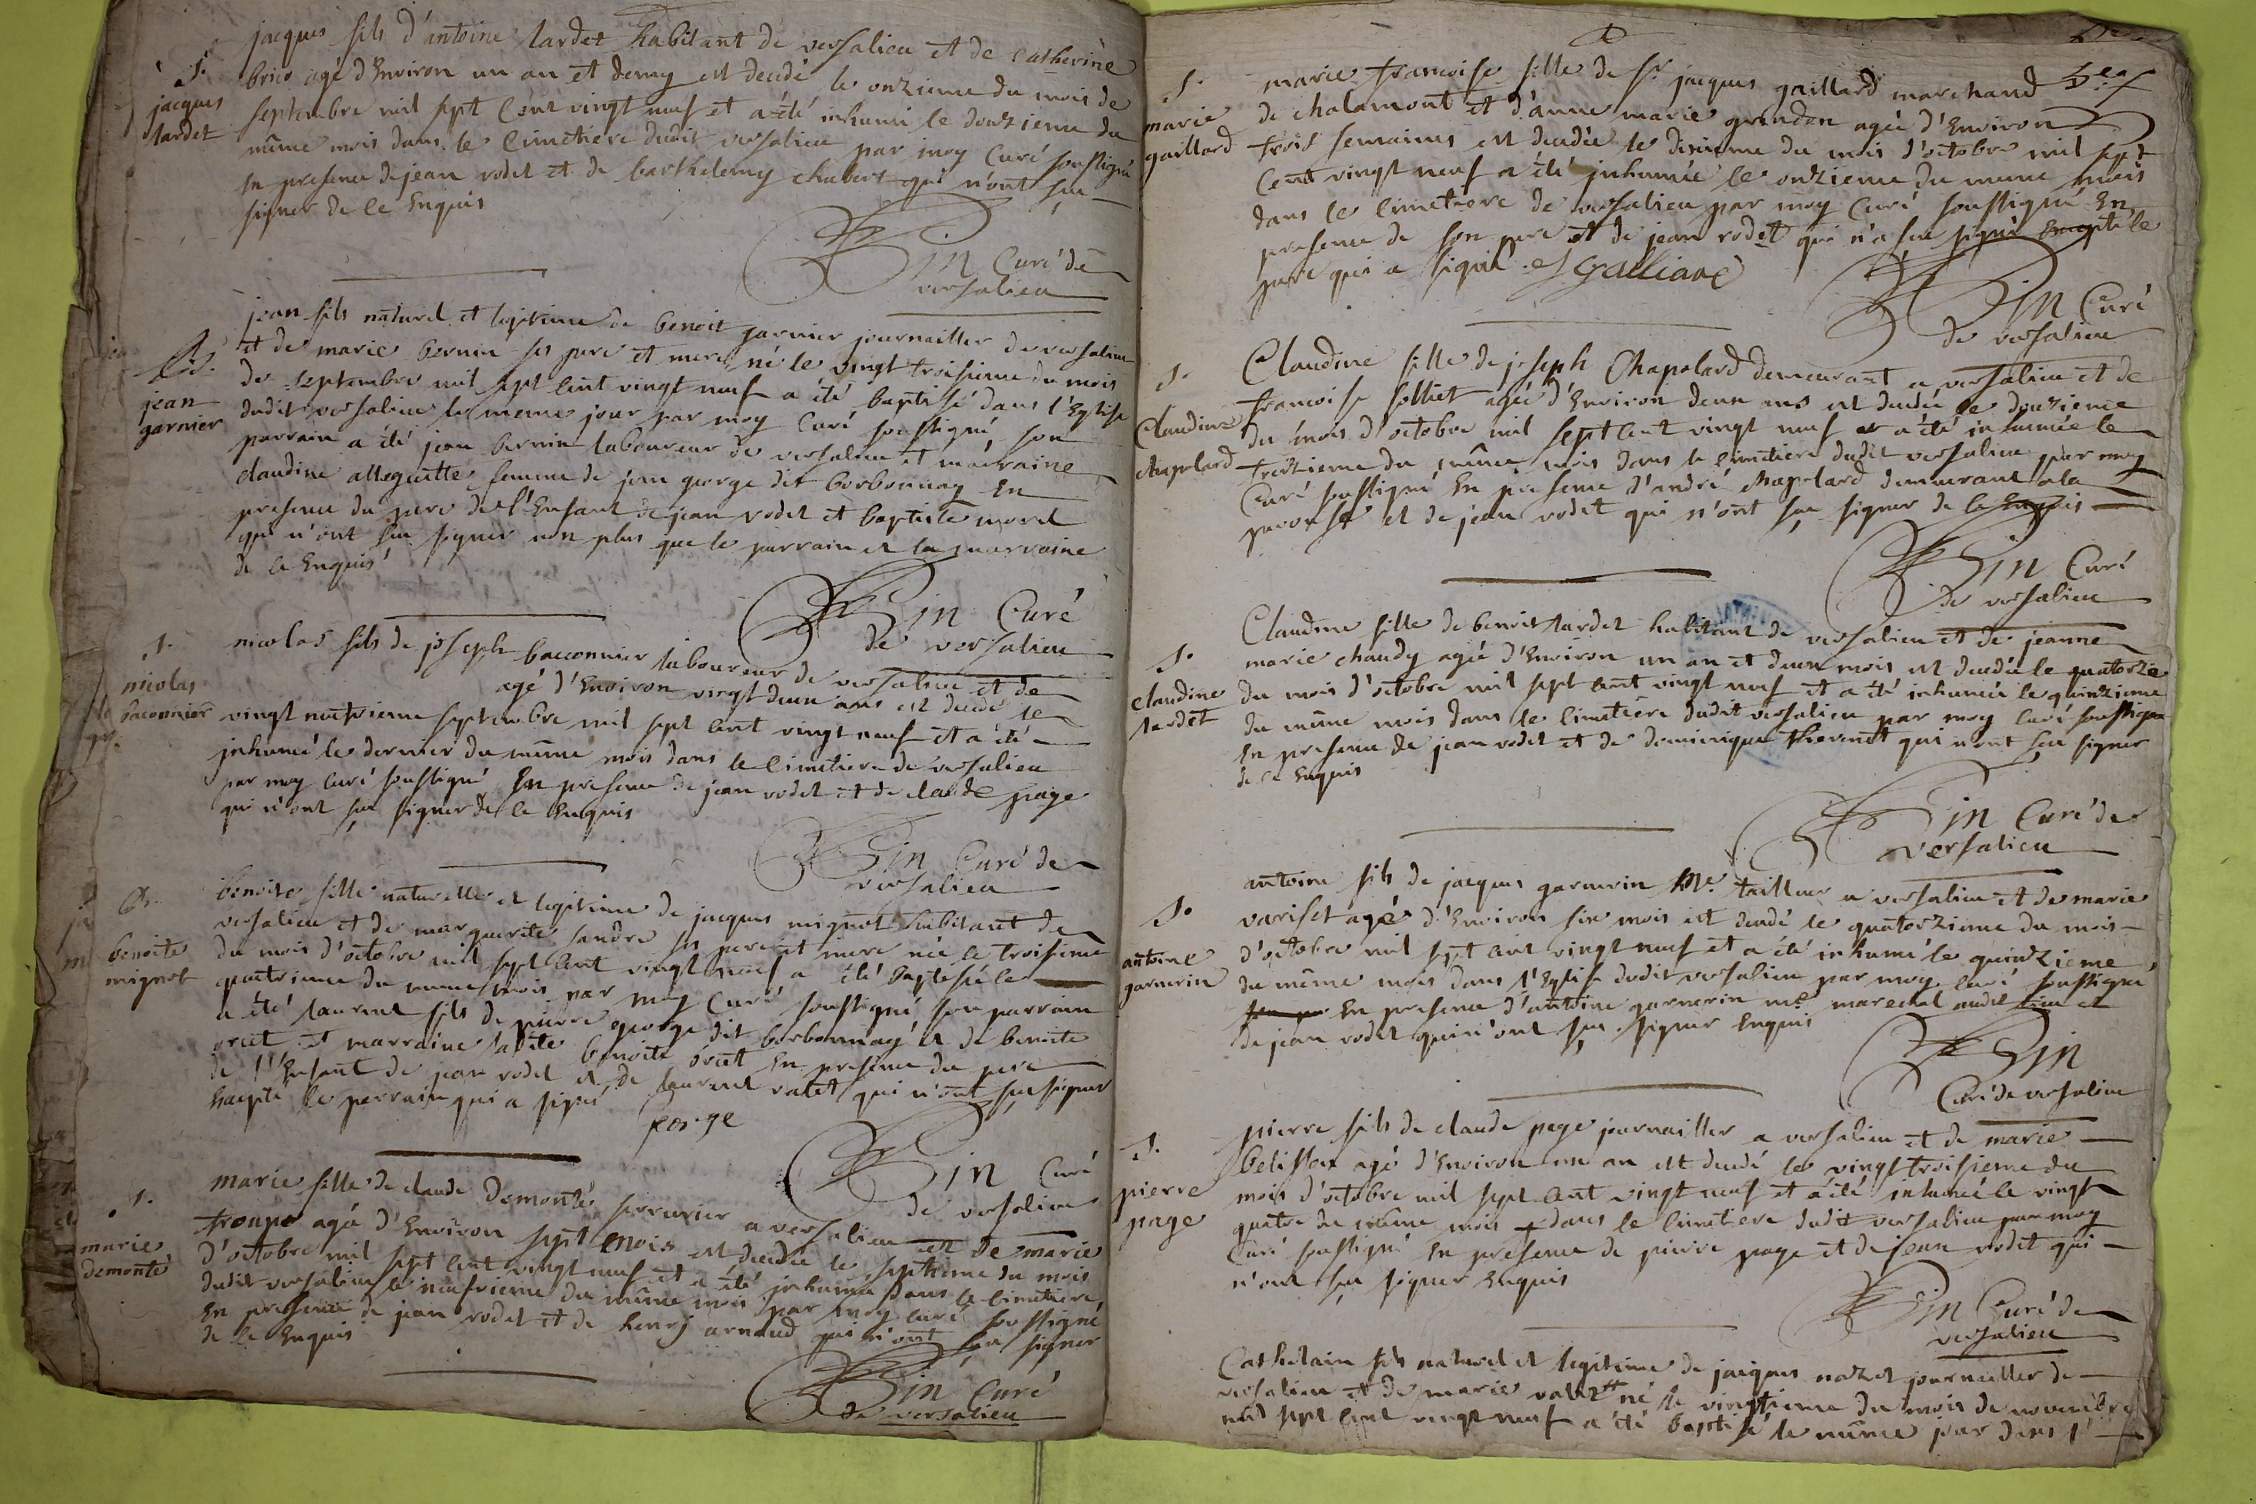 jacques fils d'antoine tardet habitant de versalieu et de catherine
S. brico agé d'Environ un an et demy est decedé le onzieme du mois de
jacques septembre mil sept Cent vingt neuf et a été inhumé le douzieme du
tardet même mois dans le Cimetiere dudit versalieu par moy Curé soussigné
En presence de jean rodet et de barthelemy chabert qui n'ont sçu
signer de ce Enquis
Bin Curé de
versalieu
jean fils naturel et legitime de benoit garnier journaillier de versalieu
B. et de marie bernin ses pere et mere né le vingt troisieme du mois
de septembre mil sept Cent vingt neuf a été baptisé dans l'Eglise
jean dudit versalieu le meme jour par moy Curé soussigné, son
garnier parrain a été jean bernin laboureur de versalieu et marraine
claudine femme de jean george dit borbonnay En
presence du pere de l'Enfant de jean rodet et baptiste morel
qui n'ont sçu signer non plus que le parrain et la marraine
de ce Enquis
Bin Curé
de versalieu
S. nicolas fils de joseph baconnier laboureur de versalieu et de
nicolas agé d'Environ vingt deux ans est decedé le
baconnier vingt neufvieme septembre mil sept Cent vingt neuf et a été
inhumé le dernier du même mois dans le Cimetiere de versalieu
par moy Curé soussigné En presence de jean rodet et de claude page
qui n'ont sçu signer de ce Enquis
Bin Curé de
versalieu
B. benoite fille naturelle et legitime de jacques mignot habitant de
versalieu et de marguerite sandre ses pere et mere née le troisieme
benoite du mois d'octobre mil sept Cent vingt neuf a été baptisée le
mignot quatrieme du meme mois par moy Curé soussigné son parrain
a été laurent fils de pierre george dit borbonnay et de benoite
orcet et marraine ladite benoite orcet En presence du pere
de l'Enfant de jean rodet et de laurent ratet qui n'ont sçu signer
Excepté le parrain qui a signé
george
Bin Curé
de versalieu
S. marie fille de claude Demonté serrurier a versalieu et de marie
agée d'Environ sept mois est decedée le septieme du mois
marie d'octobre mil sept Cent vingt neuf et a été inhumée dans le Cimetiere
demonté dudit versalieu le neufvieme du même mois par moy Curé soussigné
En presence de jean rodet et de henry arnaud qui n'ont sçu signer
de ce Enquis
Bin Curé
de versalieu
S. marie francoise fille de Sr jacques gaillard marchand
marie de chalamont et d'anne marie grindon agée d'Environ
gaillard trois semaines est decedée le dixieme du mois d'octobre mil sept
Cent vingt neuf a été inhumée le onzieme du meme mois
dans le Cimetiere de versalieu par moy Curé soussigné En
presence de son pere et de jean rodet qui n'a sçu signer Excepté le
pere qui a signé
Bin Curé
de versalieu
S. Claudine fille de joseph Chapolard demeurant a versalieu et de
francoise solliet agée d'Environ deux ans est decedée le douzieme
Claudine du mois d'octobre mil sept Cent vingt neuf et a été inhumée le
chapolard treizieme du même mois dans le Cimetiere dudit versalieu par moy
Curé soussigné En presence d'andré chapolard demeurant a la
paroisse et de jean rodet qui n'ont sçu signer de ce Enquis
Bin Curé
de versalieu
S. Claudine fille de benoit tardet habitant de versalieu et de jeanne
marie chaudy agée d'Environ un an et deux mois est decedée le quatorze
claudine du mois d'octobre mil sept Cent vingt neuf et a été inhumée le quinzieme
tardet du même mois dans le Cimetiere dudit versalieu par moy Curé soussigné
En presence de jean rodet et de dominique thevenot qui n'ont sçu signer
de ce Enquis
Bin Curé de
versalieu
S. antoine fils de jacques garnerin Me tailleur a versalieu et de marie
variset agé d'Environ six mois est decedé le quatorzieme du mois
antoine d'octobre mil sept Cent vingt neuf et a été inhumé le quinzieme
garnerin du même mois dans l'Eglise dudit versalieu par moy Curé soussigné
En presence d'antoine garnerin me marechal audit lieu et
de jean rodet qui n'ont sçu signer Enquis
Bin
Curé de versalieu
S. pierre fils de claude page journaillier a versalieu et de marie
belisson agé d'Environ un an est decedé le vingt troisieme du
pierre mois d'octobre mil sept Cent vingt neuf et a été inhumé le vingt
page quatre du même mois dans le Cimetiere dudit versalieu par moy
Curé soussigné En presence de pierre page et de jean rodet qui
n'ont sçu signer Enquis
Bin Curé de
versalieu
Cathelain fils naturel et legitime de jacques nazet journaillier de
versalieu et de marie né le vingtieme du mois de novembre
mil sept Cent vingt neuf a été baptisé le même jour dans l'